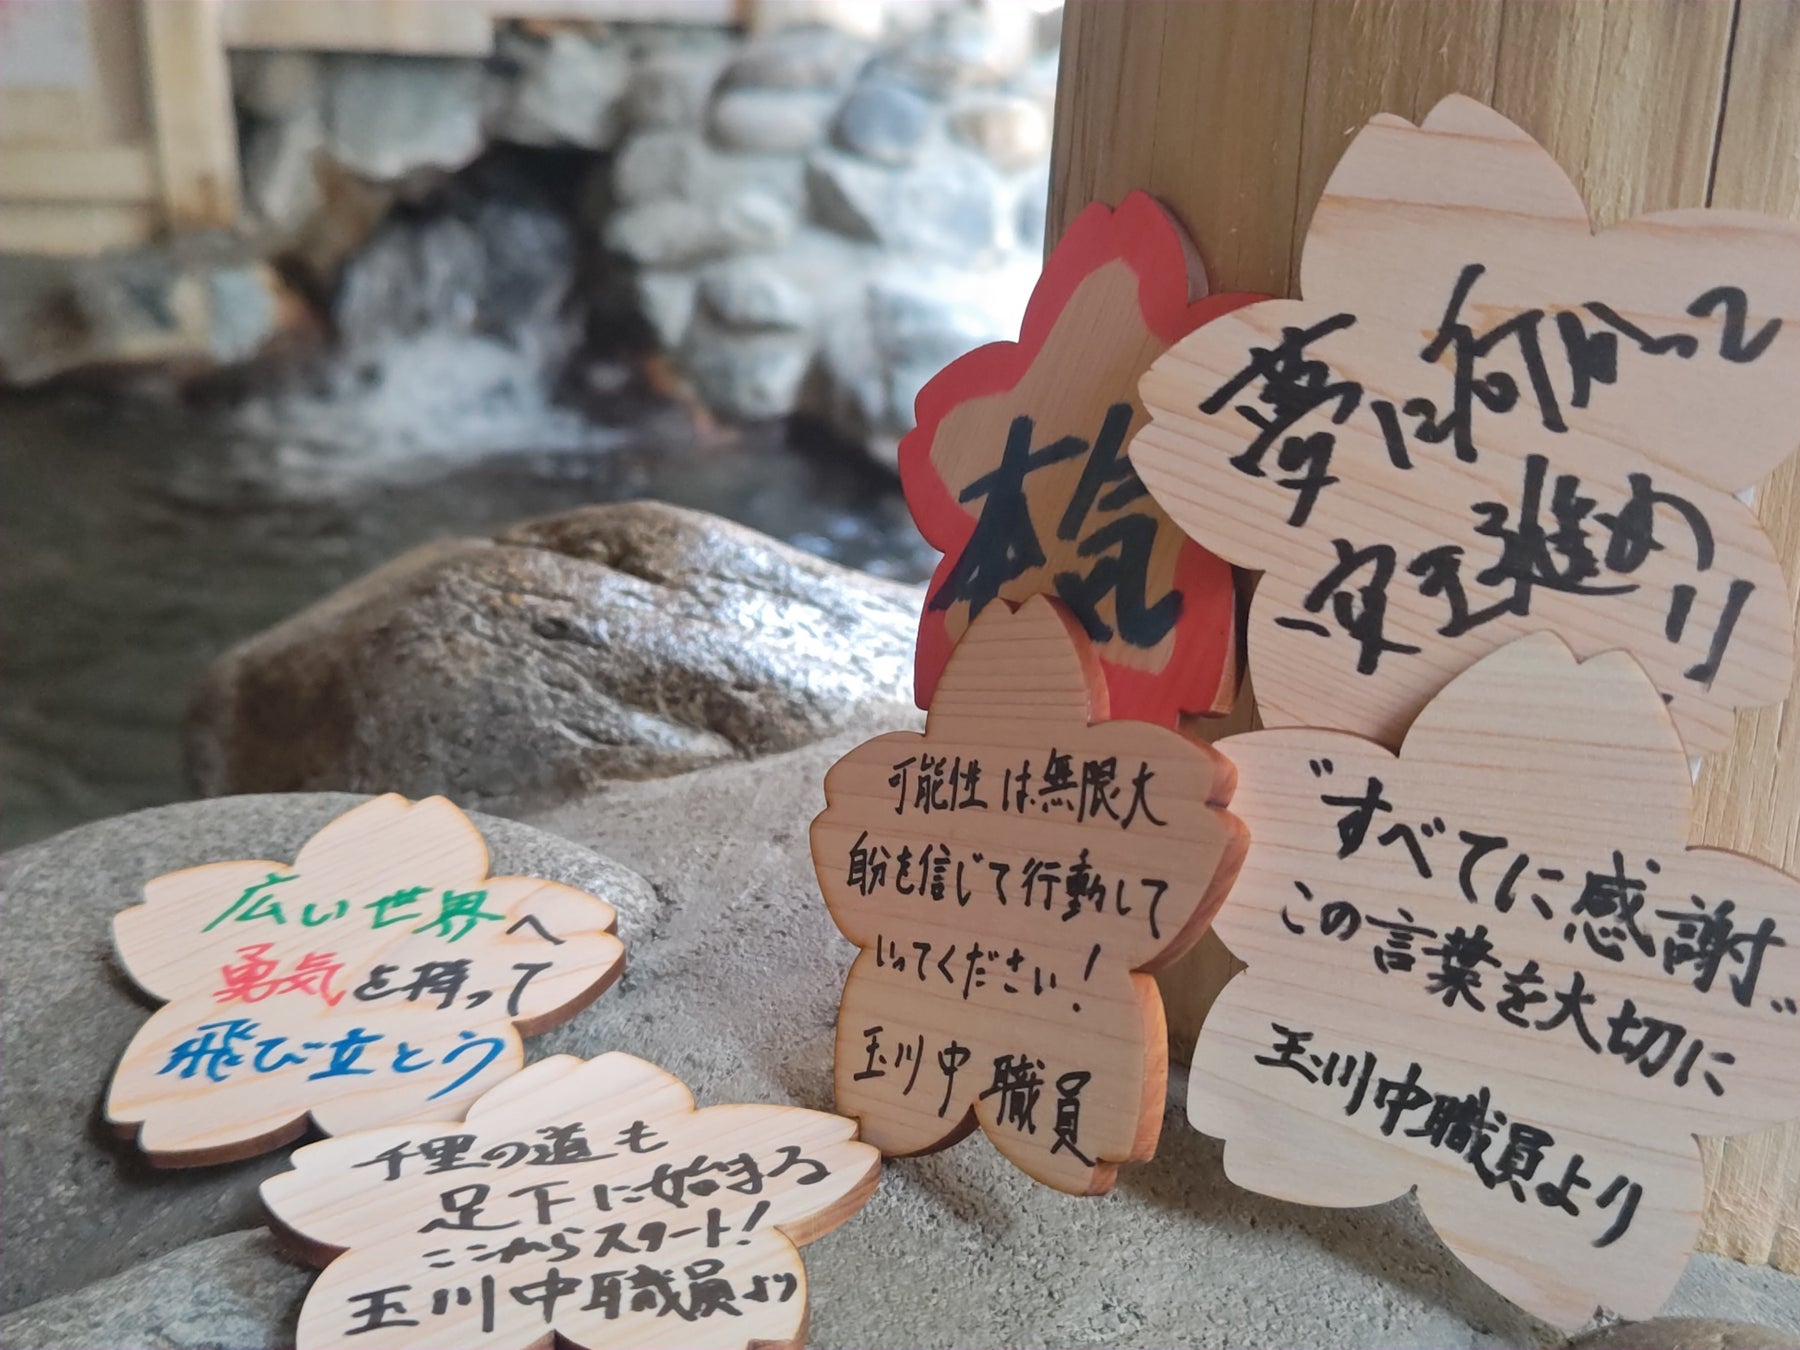 夢に向かって
一歩を進め!!
本気
可能性は無限大
自分を信じて行動して
いってください!
玉川中 職員
"すべてに感謝"
この言葉を大切に
玉川中職員より
広い世界へ
勇気を持って
飛び立とう
千里の道も
足下に始まる
ここからスタート!
玉川中職員より